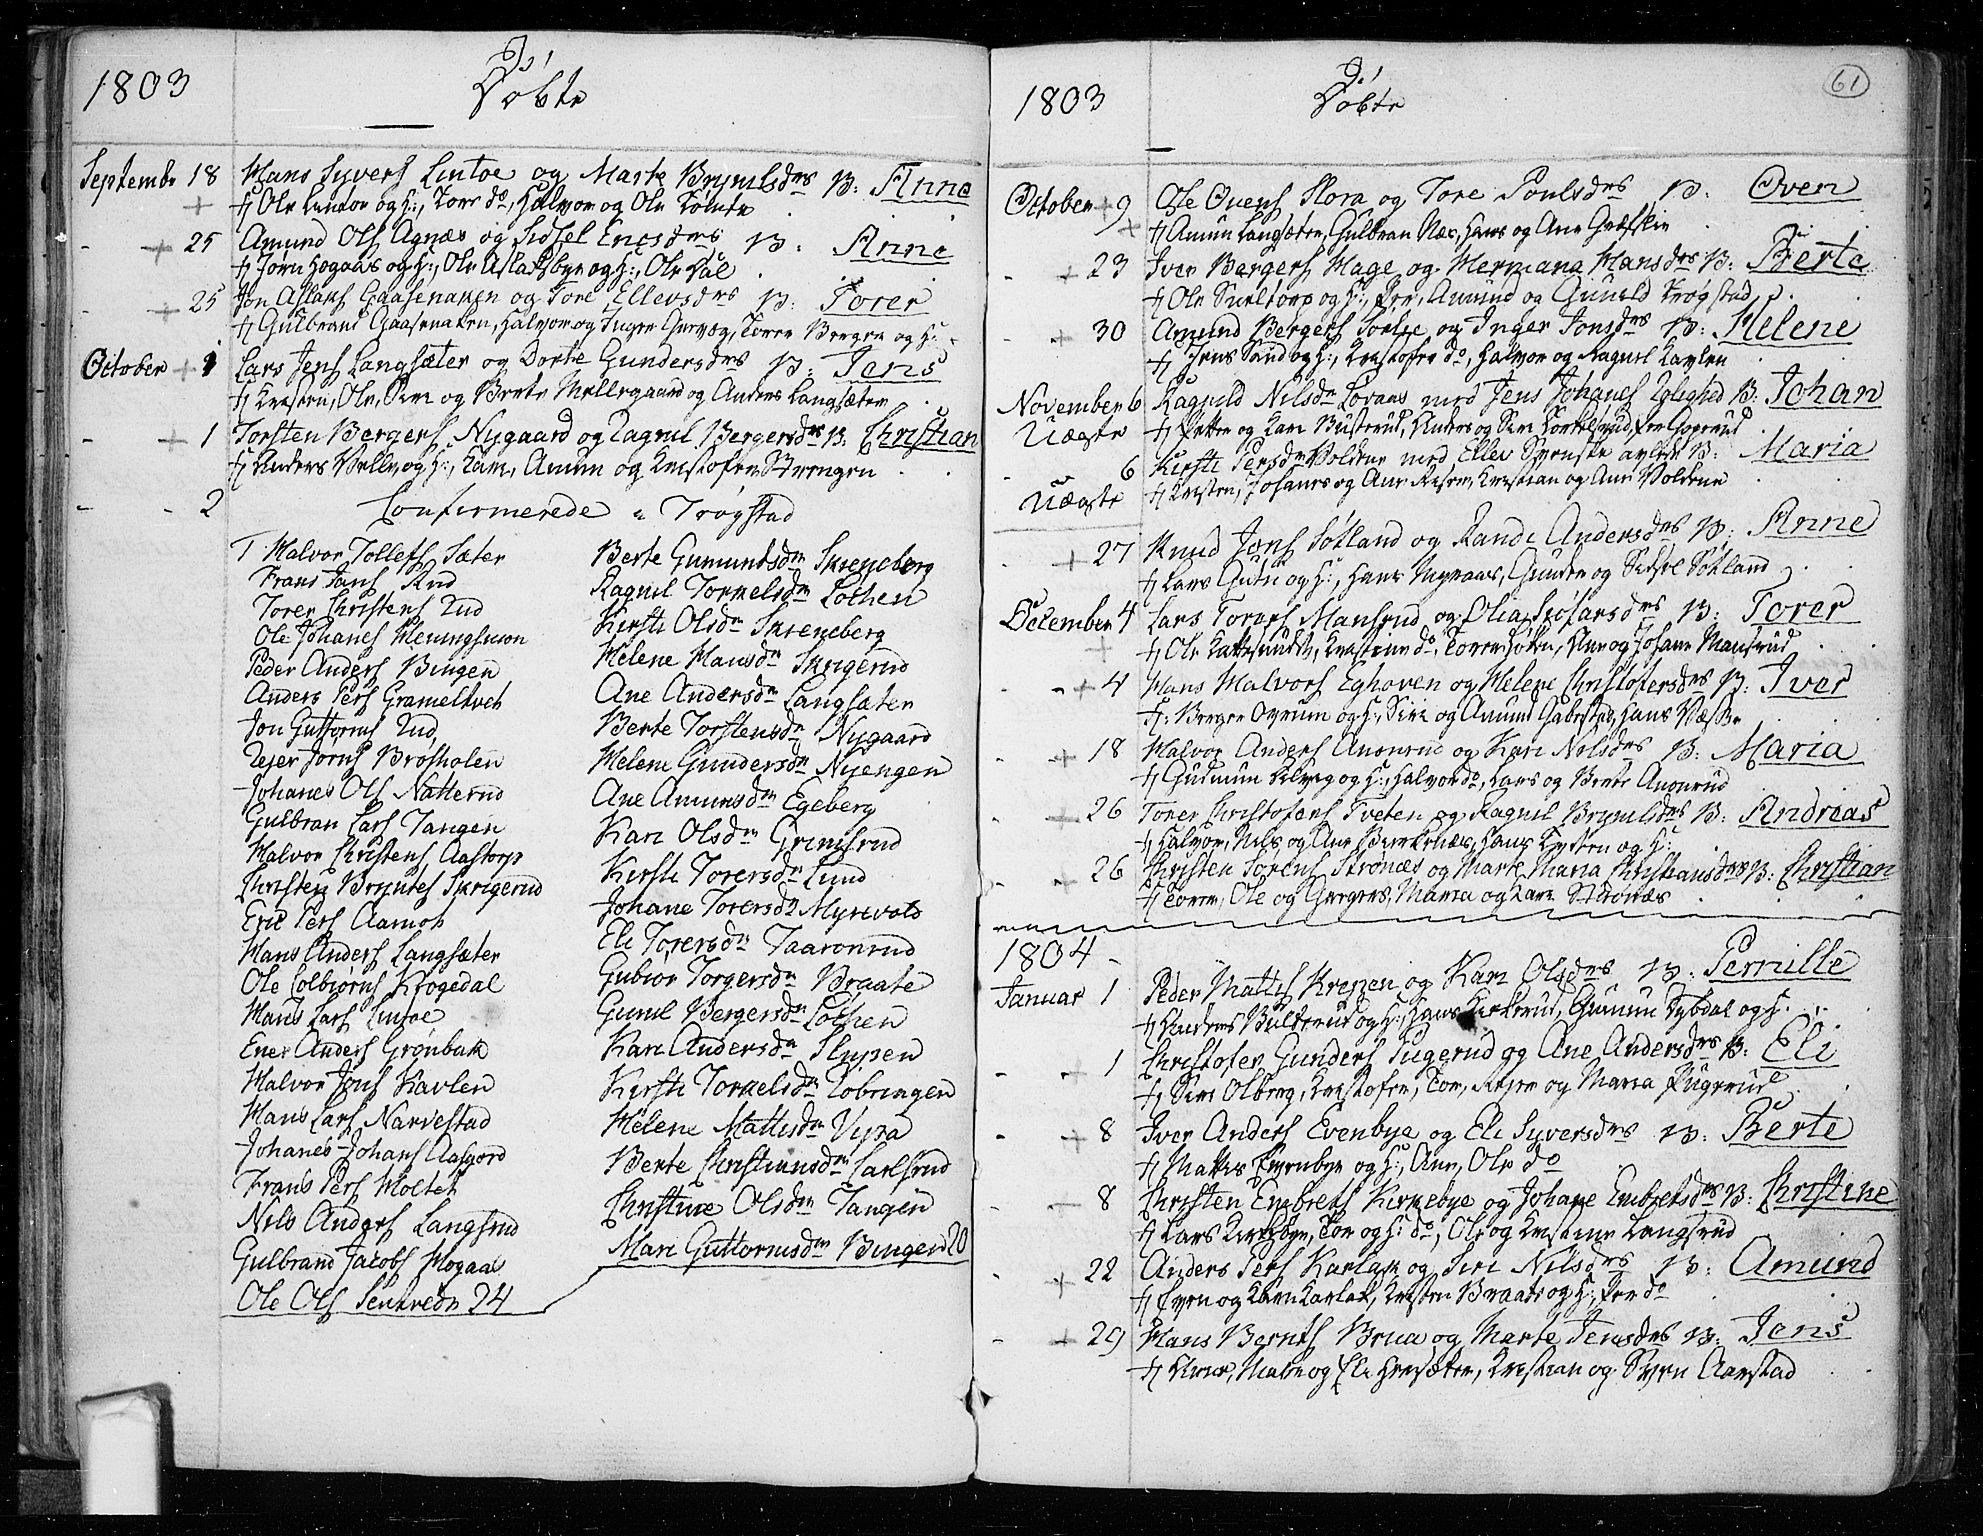 1803
Døbte
Septembr 18 Hans Syvers Lintoe og Marte Brynilsdr B: Anne
Ole Lintoe og H:, Tore do, Halvor og Ole
25 Amund Ols Agnæs og Sidsel Ericsdr B: Anne
Jørn Hogaas og H:, Ole Aslaksbye og H:, Ole Dal
25 Jon Aslaks Gaasenaken og Tore Ellevsdr B: Torer
Gulbrand Gaasenaken, Halvor og Inger, Torer Berger og H:
October 1 Lars Jens Langsæter og Dorte Gundersdr B: Jens
Kristen, Ole, Siri og Berte Mellegaard og Anders Langsæter
1 Torsten Bergers Nygaard og Ragnil Bergersdr B: Christian
Anders Velle og H:, Kari, Amun og Kristofer Strengen
2 Confirmerede i Trøgstad
T. Halvor Tollefs Sæter
Frans Jans Rud
Torer Christens Rud
Ole Johanes Heningsmoen
Peder Anders Bingen
Anders Pers Grameltvet
Jon Guttorms Rud
Rejer Jørns Brøsholen
Johanes Ols Natterud
Gulbran Lars Tangen
Halvor Christens Aastorp
Christen Bryntes Skrigerud
Eric Pers Aamot
Hans Anders Langsæter
Ole Colbiørns Krogedal
Hans Lars Lintoe
Ener Anders Grønbak
Halvor Jons Kavlen
Hans Lars Narvestad
Johanes Johans Aasgord
Frans Pers Holtet
Nils Anders Langsrud
Gulbrand Jacobs Mogaas
Ole Ols 24
Berte Gumundsdr Skreneberg
Ragnil Torkelsdr Lothen
Kirsti Olsdr Skreneberg
Helene Hansdr Skrigerud
Ane Andersdr Langsæter
Berte Torstensdr Nygaard
Helene Gundersdr Nyengen
Ane Amunsdr Egeberg
Kari Olsdr Grimsrud
Kirsti Torersdr Lund
Johane Torersdr Myrevold
Eli Torersdr Taaronrud
Gubior Torgersdr Braate
Gunil Bergersdr Lothen
Kari Andersdr Slupen
Kirsti Torkelsdr Tobringen
Helene Mattisdr Vipa
Berte Christiansdr Carlsrud
Christine Olsdr Tangen
Mari Guttormsdr Bingen 20
1803
Døbte
61
October 9 Ole Ovens Mora og Tore Poulsdr B: Oven
Amun Langsæter, Gulbran Næs, Hans og Ane Græsli
23 Iver Bergers Hage og Hermana Hansdr B: Berte
Ole Sneltorp og H:, Per, Amund og Gunild Trøgstad
30 Amund Bergers og Inger Jonsdr B: Helene
Jens Sand og H:, Kristofer do, Halvor og Ragnil Kavlen
November 6 Ragnild Nilsdr med Jens Johanes B: Johan
Uægte Petter og Kari Busterud, Anders og Siri
6 Kirsti Persdr Voldene med Ellev Svenske avlede B: Maria
Uægte Kristen, Johanes og Ane Risen, Kristian og Ane Voldene
27 Knud Jons Søtland og Randi Andersdr B: Anne
Lars Gutu og H:, Hans, Gunder og Sidsel Søtland
December 4 Lars Torers Mansrud og Olia B: Torer
Ole Kattesrud, Kristine do, Torer, Ane og Johane Mansrud
4 Hans Halvors Eghoven og Helene Christofersdr B: Iver
Berger Ovrum og H:, Siri og Amund Gabestad, Hans
18 Halvor Anders Anonrud og Kari Nilsdr B: Maria
Gudmun og H:, Halvor do, Lars og Berte Anonrud
26 Torer Christofers Tveten og Ragnil Brynilsdr B: Andreas
Halvor, Nils og Ane Birkenæs, Hans og H:
26 Christen Sorens Strønæs og Marte Maria Christiansdr B: Christian
Torer, Ole og Gregers, Maria og Kari Strønæs
1804
Januar 1 Peder Mattis Kreppen og Kari Olsdr B: Pernille
Anders Bulterud og H:, Hans Kirkerud, Gumun Dybdal og H.
1 Christofer Gunders Pugerud og Ane Andersdr B: Eli
Siri Olberg, Kristofer, Tor, Anne og Maria Pugerud
8 Iver Anders Evenbye og Eli Syversdr B: Berte
Mattis Evenbye og H:, Ane, Ole do
8 Christen Embrets Kirkebye og Johane Embretsdr B: Christine
Lars Kirkebye, Tor og H: do, Ole og Kristine Langsrud
22 Anders Pers Karlak og Siri Nilsdr B: Amund
Even og Karen Karlak, Kristen Braate og H:, Per do
29 Hans Bernts Brua og Marte Jensdr B: Jens
Anne, Malene og Eli, Kristian og Syver Aarstad